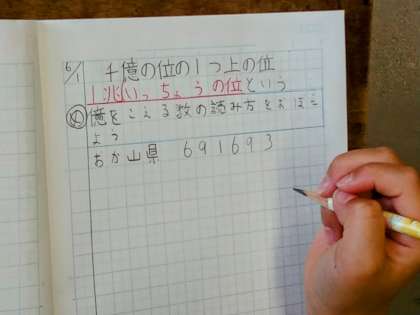 6/1
千億の位の1つ上の位
1兆(いっちょう)の位という
め 億をこえる数の読み方をおぼえ
よう
おか山県 691693